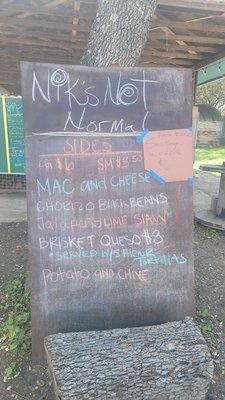 NiK's NOT
NORMAL
SIDES
LG $6 SM $3.50
MAC and CHEESE
CHORIZO BlackBEANS
Jalapeño LIME SLAW
BRISKET QUESO $8
*SERVED W/5 FLOUR
TORTILLAS
POTATO AND CHIVE